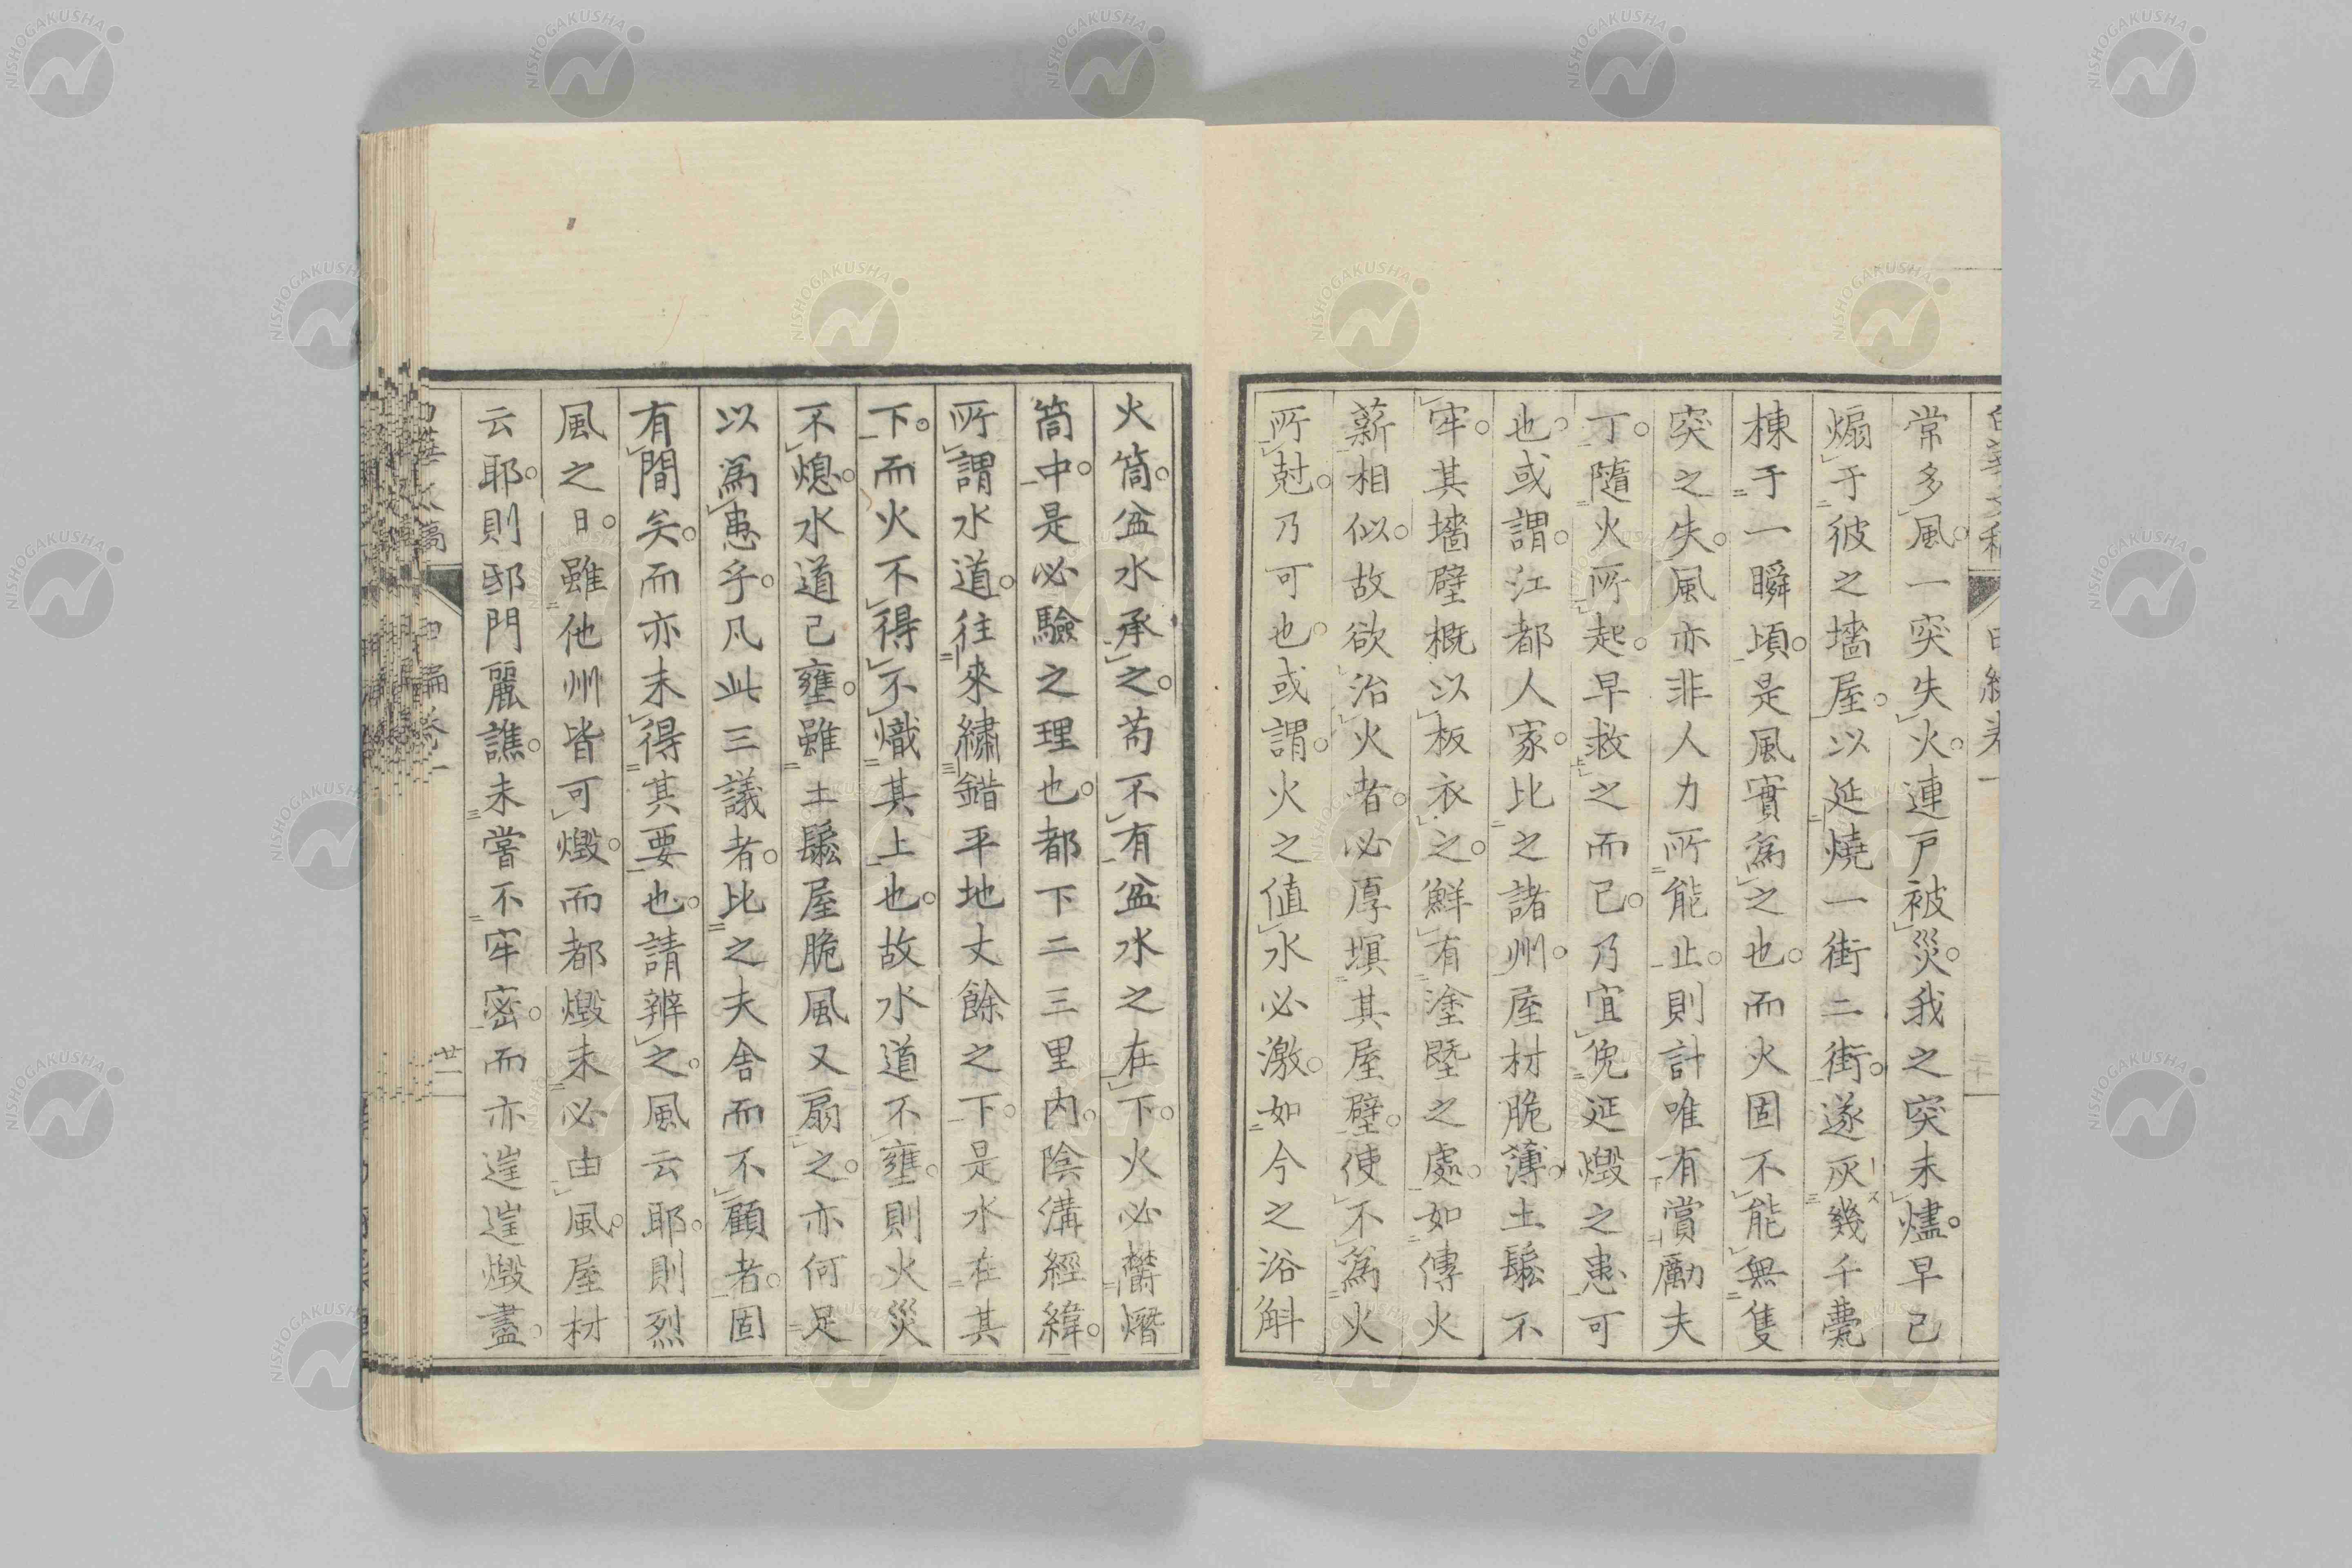 常多風。一突失火。連戸被災。我之突未燼。早已
煽于彼之墻屋。以延燒一街二街。遂灰幾千甍
棟于一瞬頃。是風實爲之也。而火固不能無隻
突之失。風亦非人力所能止。則計唯有賞勵夫
丁。隨火所起。早救之而已。乃宜免延燬之患可
也。或謂。江都人家。比之諸州。屋材脆薄。土鬆不
牢。其墻壁概以板衣之。鮮有塗塈之處。如傳火
薪相似。故欲治火者。必厚塡其屋壁。使不爲火
所尅。乃可也。或謂。火之値水必激。如今之浴斛
火筒。盆水承之。苟不有盆水之在下。火必欝熸
筒中。是必驗之理也。都下二三里内。陰溝經緯。
所謂水道。往來繡錯平地丈餘之下。是水在其
下。而火不得不熾其上也。故水道不壅。則火災
不熄。水道已壅。雖土鬆屋脆風又扇之。亦何足
以爲患乎。凡此三議者。比之夫舍而不顧者。固
有間矣。而亦未得其要也。請辨之。風云耶。則烈
風之日。雖他州皆可燬。而都燬未必由風。屋材
云耶。則邸門麗譙。未嘗不牢密。而亦逞逞燬盡。
廿一
NISHOGAKUSHA